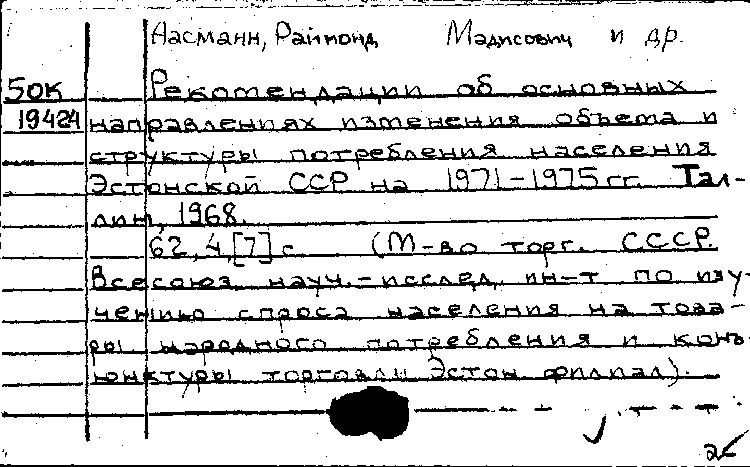 Аасманн, Раймонд Мадисович и др.
50К Рекомендации об основных
19424 направлениях изменения объема и
структуры потребления населения
Эстонской ССР на 1971-1975 гг. Тал-
лин, 1968.
62, 4, [7] с. (М-во торг. СССР.
Всесоюз. науч.-исслед. ин-т по изу-
чению спроса населения на това-
ры народного потребления и конъ-
юнктуры торговли Эстон. филиал).